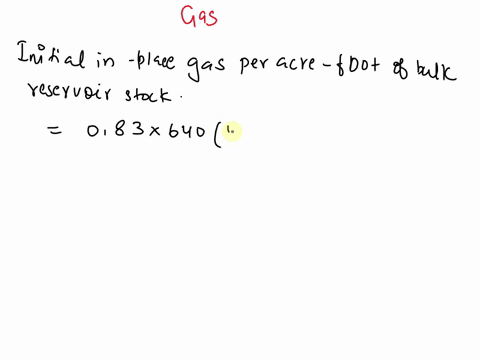 Gas
Initial in-place gas per acre-foot of bulk
reservoir stock.
= 0.83 × 640 (1.